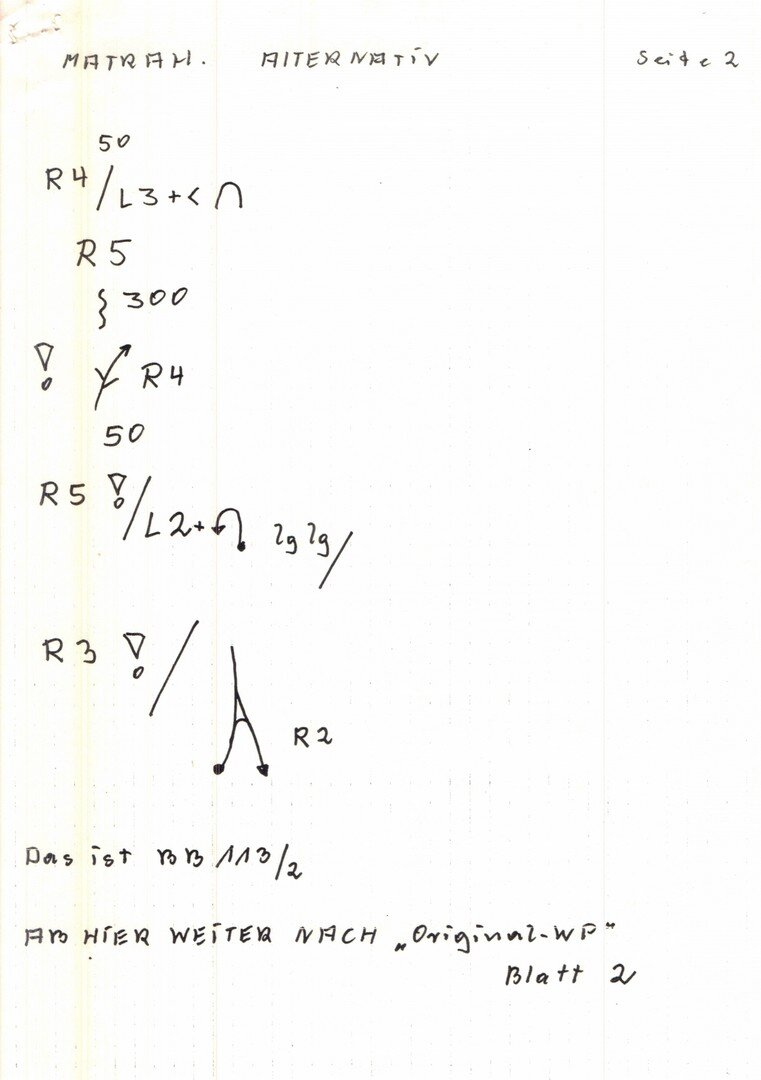 MATRAH. AlTERNATiV Seite 2
50
R4 / L3 + < ∩
R5
} 300
! R4
50
R5 ! / L2 + lg lg /
R3 ! / R2
Das ist BB 113/2
AB HiER WEiTER NACH „Original-WP"
Blatt 2